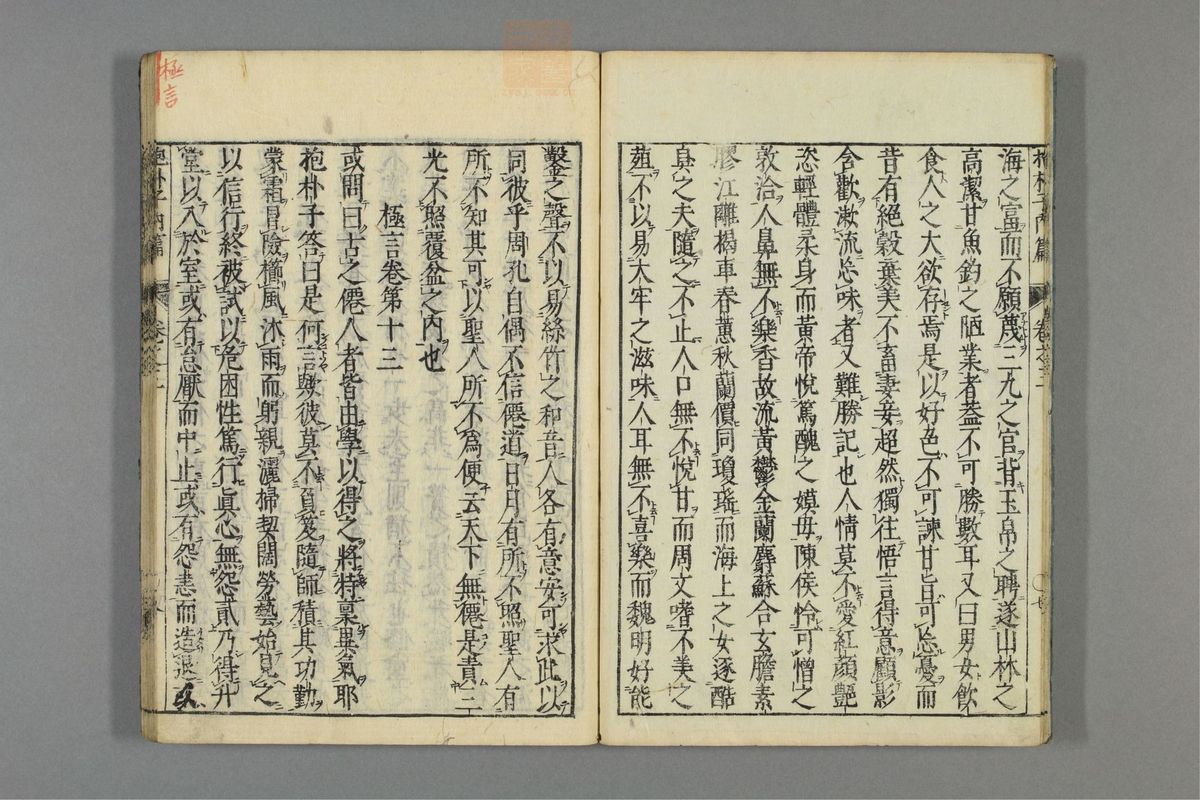 抱朴子內篇 卷之十二
海之富而不顧蔑三九之官背玉帛之聘遂山林之
高潔甘魚釣之陋業者蓋不可勝數耳又曰男女飲
食人之大欲存焉是以好色不可諫甘旨可忘憂而
昔有絕穀棄美不畜妻妾超然獨往悟言得意顧影
含歡漱流忘味者又難勝記也人情莫不愛紅顏艷
恣輕體柔身而黃帝悅篤醜之嫫母陳侯怜可憎之
敦洽人鼻無不樂香故流黃鬱金蘭麝蘇合玄膽素
膠江離揭車春蕙秋蘭價同瓊瑤而海上之女逐酷
臭之夫隨之不止人口無不悅甘而周文嗜不美之
葅不以易大牢之滋味人耳無不喜樂而魏明好能
鑿之聲不以易絲竹之和音人各有意安可求此以
同彼乎周孔自偶不信僊道日月有所不照聖人有
所不知其可以聖人所不爲便云天下無僊是責三
光不照覆盆之內也
極言卷第十三
或問曰古之僊人者皆由學以得之將特稟異氣耶
抱朴子答曰是何言歟彼莫不負笈隨師積其功勤
蒙霜冒險櫛風沐雨而躬親灑掃契闊勞藝始見之
以信行終被試以危困性篤行眞心無怨貳乃得升
堂以入於室或有怠厭而中止或有怨恚而造退
抱朴子內篇
極言